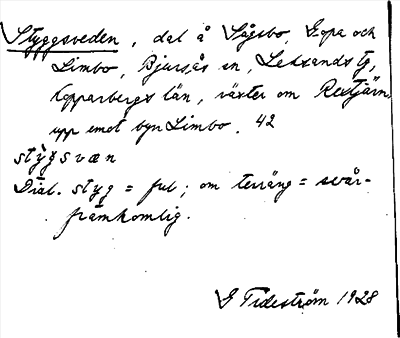 Styggsveden, del å Sågsbo, Gopa och
Limbo, Bjursås sn, Leksands tg,
Kopparbergs län, väster om Rextjärn,
upp emot byn Limbo. 42
stỳgsvæn
Dial. styg = ful; om terräng = svår-
framkomlig.
G Tideström 1928